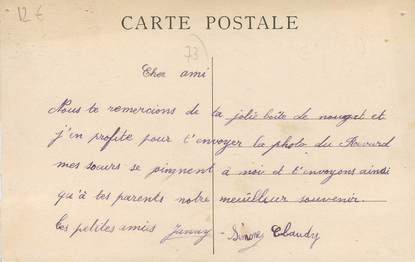 12 €
CARTE POSTALE
73)
Cher ami
Nous te remercions de ta jolie boîte de nougat et
j'en profite pour t'envoyer la photo du Revard
mes soeurs se joignent à moi et t'envoyons ainsi
qu'à tes parents notre meuilleur souvenir.
Tes petites amies Jenny - Simone Claudy